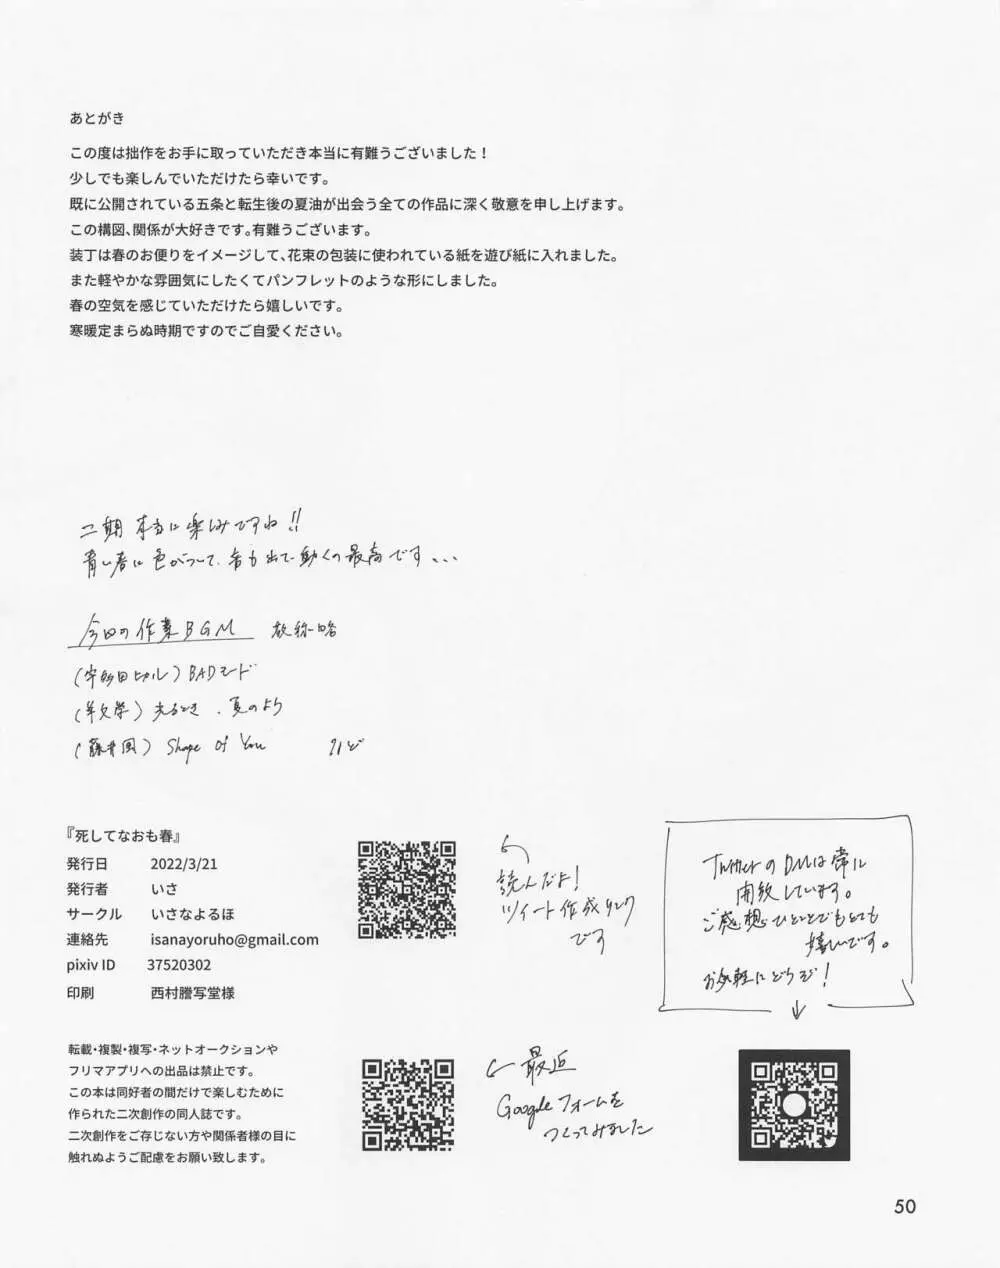 あとがき
この度は拙作をお手に取っていただき本当に有難うございました!
少しでも楽しんでいただけたら幸いです。
既に公開されている五条と転生後の夏油が出会う全ての作品に深く敬意を申し上げます。
この構図、関係が大好きです。有難うございます。
装丁は春のお便りをイメージして、花束の包装に使われている紙を遊び紙に入れました。
また軽やかな雰囲気にしたくてパンフレットのような形にしました。
春の空気を感じていただけたら嬉しいです。
寒暖定まらぬ時期ですのでご自愛ください。
二期 本当に楽しみですね!!
青い春に色がついて、音も出て動くの最高です、、、
今回の作業BGM 敬称略
(宇多田ヒカル) BADモード
(羊文学) 光るとき、夏のよう
(藤井風) Shape Of You など
『死してなおも春』
発行日 2022/3/21
発行者 いさ
サークル いさなよるほ
連絡先 isanayoruho@gmail.com
pixiv ID 37520302
印刷 西村謄写堂様
読んだよ!
ツイート作成リンク
です
TwitterのDMは常に
開放しています。
ご感想ひとことでもとても
嬉しいです。
お気軽にどうぞ!
転載・複製・複写・ネットオークションや
フリマアプリへの出品は禁止です。
この本は同好者の間だけで楽しむために
作られた二次創作の同人誌です。
二次創作をご存じない方や関係者様の目に
触れぬようご配慮をお願い致します。
最近
Googleフォームを
つくってみました
50